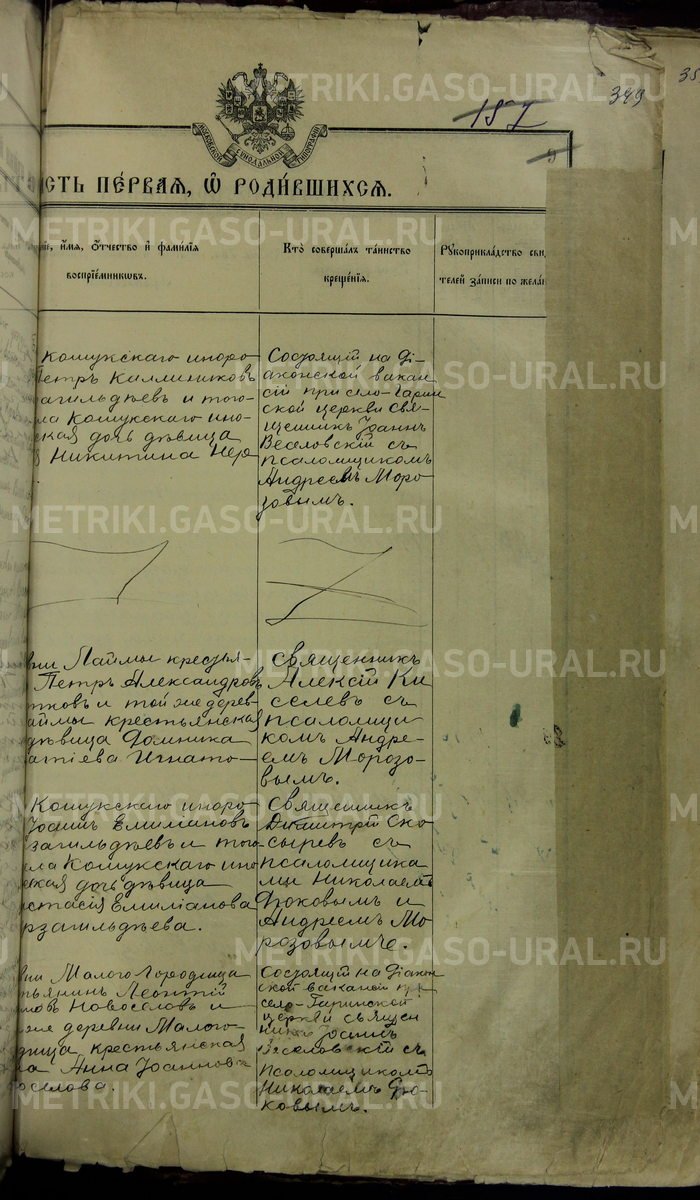 METRIKI.GASO-URAL.RU
35
349
157
МОСКОВСКОЙ СУНОДАЛЬНОЙ ТИПОГРАФІИ
СТЬ ПЕ́РВАЯ, Ѿ РОДИ́ВШИХСЯ.
и҆́мя, Ѻ҆́тчество и҆ фами́лїя
воспрїе́мникѡвъ.
Кто̀ соверша́лъ та́инство
креще́нїя.
Рꙋкоприкла́дство сви
телей за́писи по жела
Кошукскаго иноро
Петръ Каллиников
загильдѣевъ и того
ла Кошукскаго ино
ская дочь дѣвица
Никитина Нер
Состоящій на Ді-
аконской вакан
сіи при село-Гарин
ской церкви Свя-
щенникъ Іоаннъ
Веселовскій съ
псаломщикомъ
Андреемъ Моро
зовымъ.
METRIKI.GASO-URAL.RU
вни Лаймы крестья-
Петръ Александровъ
тковъ и той же дерев
аймы крестьянская
дѣвица Домника
атіева Игнато-
Священникъ
Алексій Ки
селевъ съ
псаломщи
комъ Андре-
емъ Морозо-
вымъ.
METRIKI.GASO-URAL.RU
Кошукскаго иноро
Іоаннъ Емиліановъ
загильдѣевъ и того
ла Кошукскаго ино
ская дочь дѣвица
стасія Емиліанова
рзагильдѣева.
Священникъ
Димитрій Ско
сыревъ съ
псаломщика
ми Николаемъ
Фоковымъ и
Андреемъ Мо
розовымъ.
METRIKI.GASO-URAL.RU
вни Малого Городища
тьянинъ Леонтій
новъ Новоселовъ и
же деревни Малого-
дища крестьянская
ка Анна Іоаннова
оселова.
Состоящій на Діакон
ской ваканси при
село-Гаринской
церкви священ
никъ Іоаннъ
Веселовскій съ
псаломщикомъ
Николаемъ Фо-
ковымъ.
METRIKI.GASO-URAL.RU